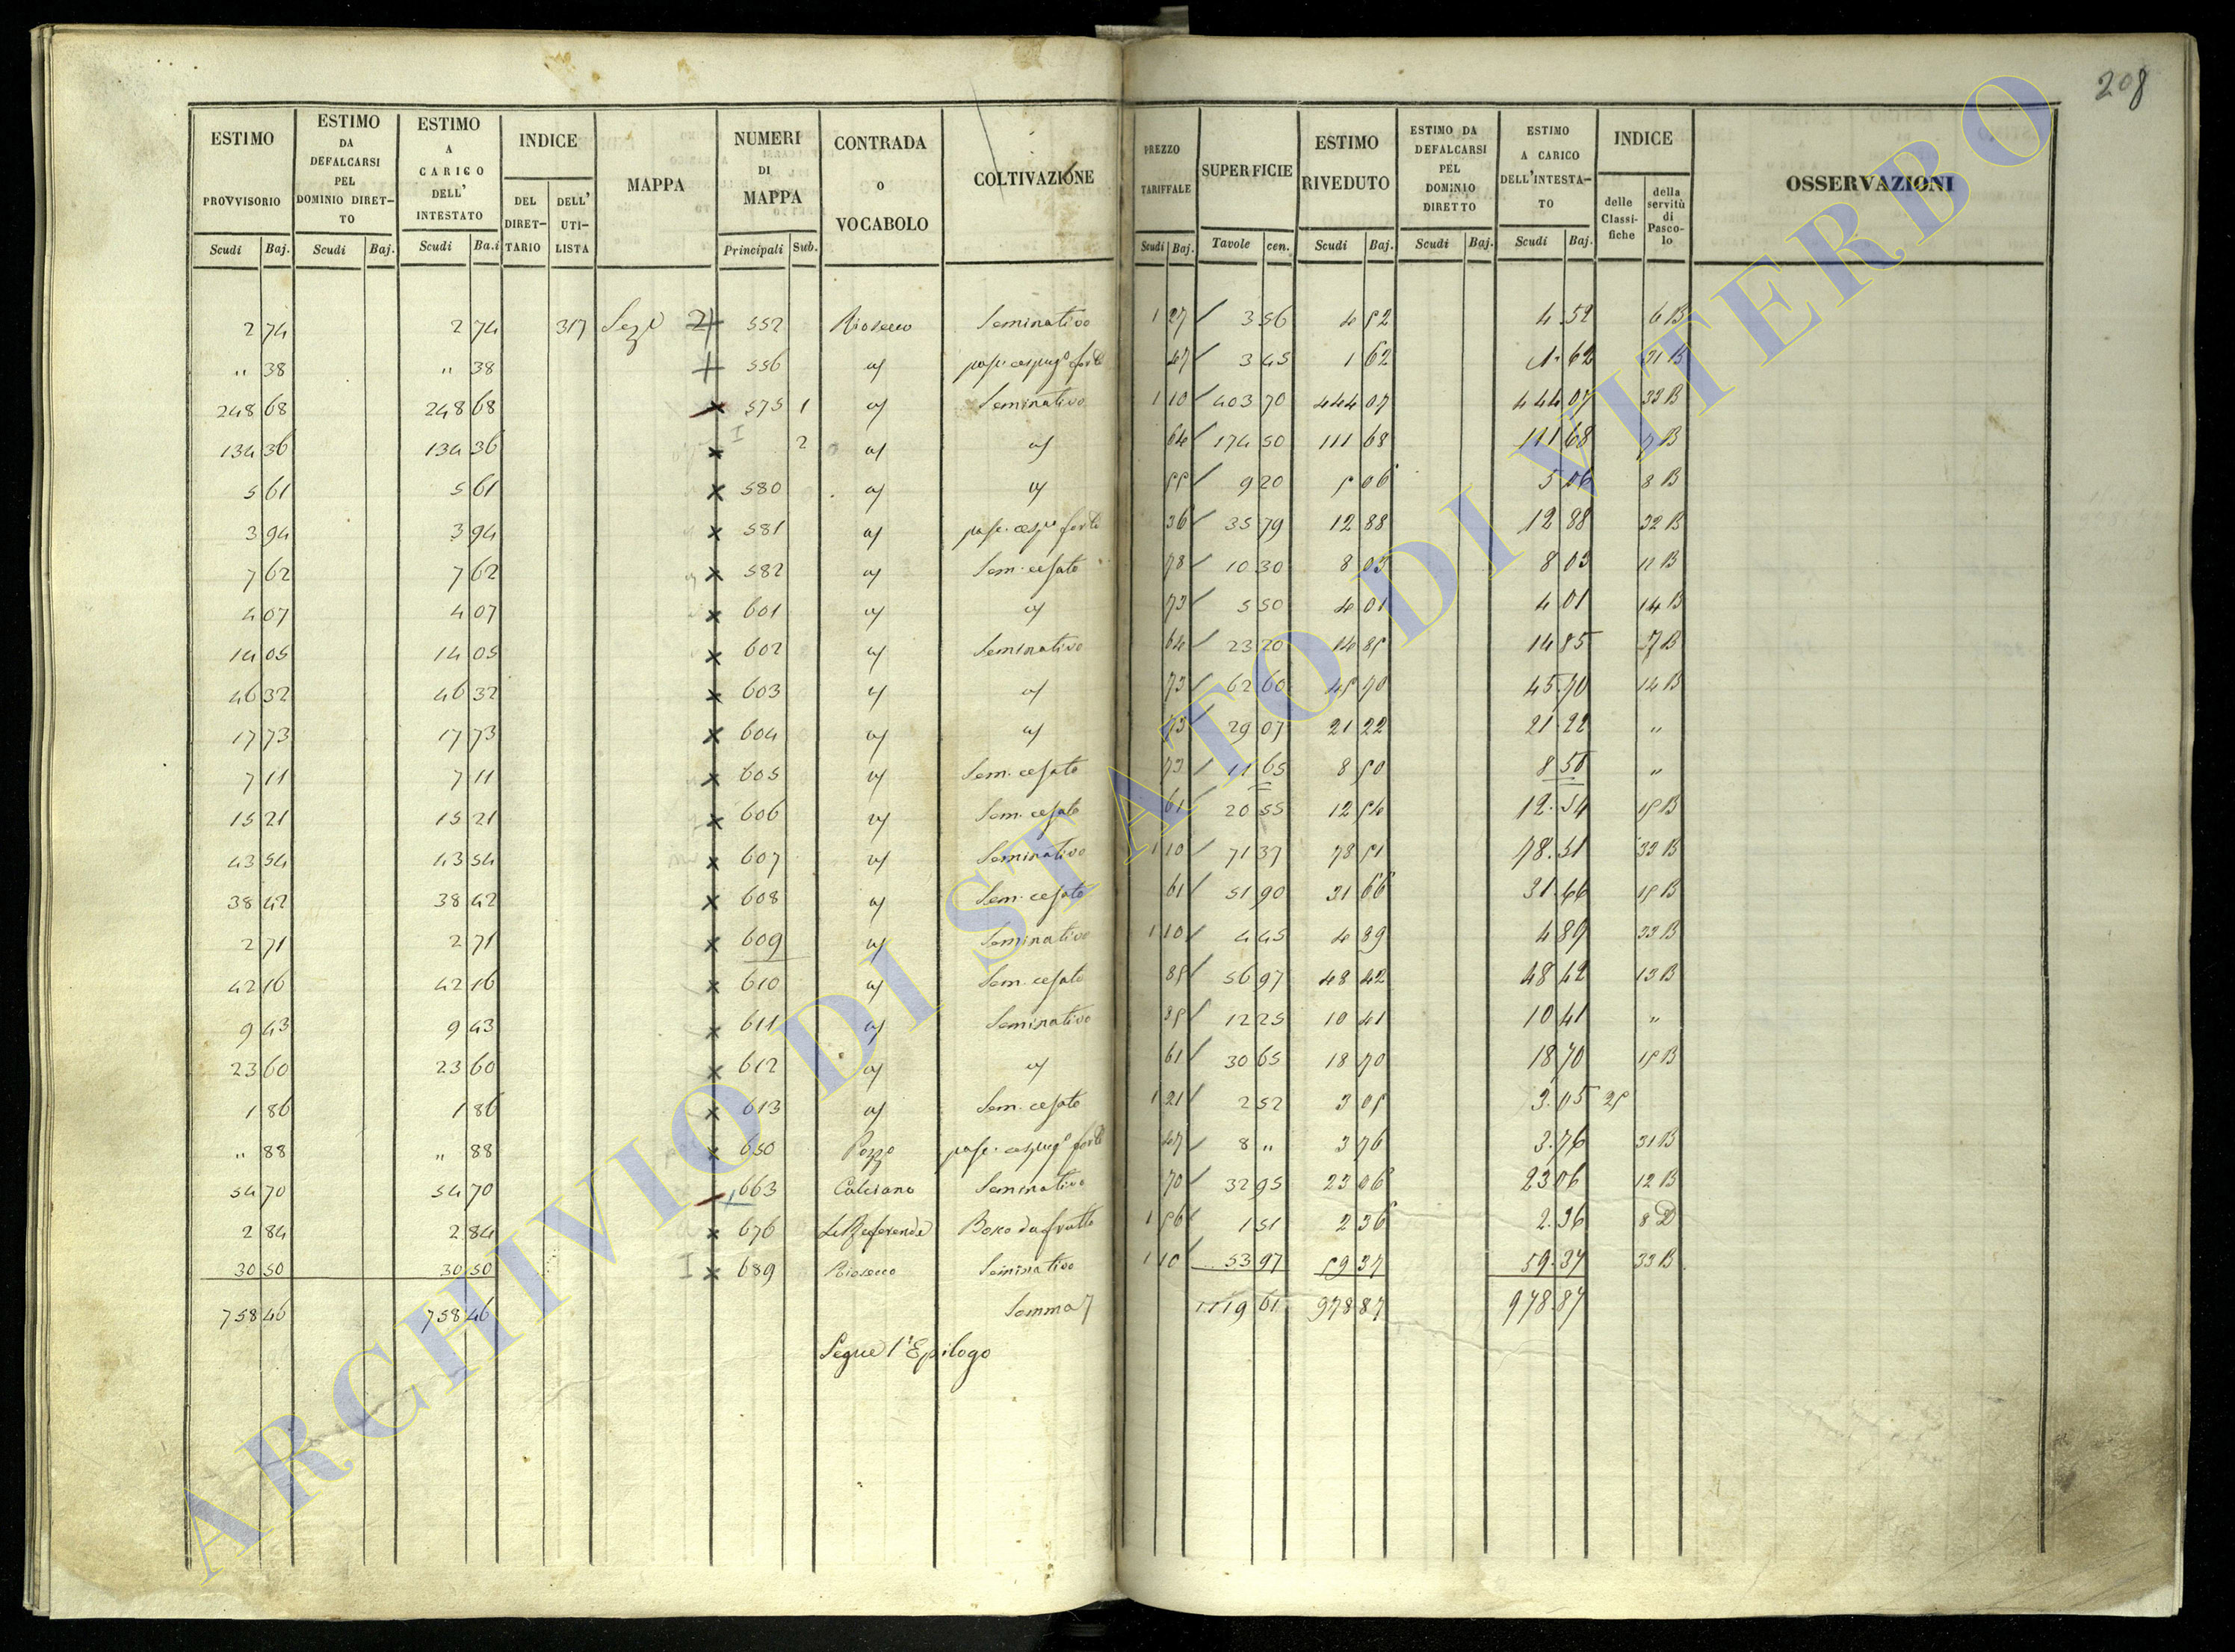 208
ESTIMO PROVVISORIO Scudi Baj.
ESTIMO DA DEFALCARSI PEL DOMINIO DIRETTO Scudi Baj.
ESTIMO A CARICO DELL' INTESTATO Scudi Baj.
INDICE DEL DIRETTARIO DELL' UTILISTA
MAPPA
NUMERI DI MAPPA Principali Sub.
CONTRADA O VOCABOLO
COLTIVAZIONE
PREZZO TARIFFALE Scudi Baj.
SUPERFICIE Tavole cen.
ESTIMO RIVEDUTO Scudi Baj.
ESTIMO DA DEFALCARSI PEL DOMINIO DIRETTO Scudi Baj.
ESTIMO A CARICO DELL'INTESTATO Scudi Baj.
INDICE delle Classifiche della servitù di Pascolo
OSSERVAZIONI
2 74 2 74 317 Sez. 552 Riosecco Seminativo 1 27 3 56 4 52 4 52 6 B
" 38 " 38 556 a/ pasc. cespug. forte 47 3 45 1 62 1.62 31 B
248 68 248 68 575 1 a/ Seminativo 1 10 403 70 444 07 444 07 33 B
134 36 134 36 2 a/ a/ 64 174 50 111 68 111 68 7 B
5 61 5 61 580 a/ a/ 55 9 20 5 06 5 06 8 B
3 94 3 94 581 a/ pasc. cesp. forte 36 35 79 12 88 12 88 32 B
7 62 7 62 582 a/ Sem. cesato 78 10 30 8 03 8 03 11 B
4 07 4 07 601 a/ a/ 73 5 50 4 01 4 01 14 B
14 05 14 05 602 a/ Seminativo 64 23 20 14 85 14 85 7 B
46 32 46 32 603 a/ a/ 73 62 60 45 70 45.70 14 B
17 73 17 73 604 a/ a/ 73 29 07 21 22 21 22 "
7 11 7 11 605 a/ Sem. cesato 73 11 65 8 50 8 50 "
15 21 15 21 606 a/ Sem. cesato 61 20 55 12 54 12.54 15 B
43 54 43 54 607 a/ Seminativo 1 10 71 37 78 51 78.51 33 B
38 42 38 42 608 a/ Sem. cesato 61 51 90 31 66 31.66 15 B
2 71 2 71 609 a/ Seminativo 1 10 4 45 4 89 4 89 33 B
42 16 42 16 610 a/ Sem. cesato 85 56 97 48 42 48 42 13 B
9 43 9 43 611 a/ Seminativo 85 12 25 10 41 10 41 "
23 60 23 60 612 a/ a/ 61 30 65 18 70 18 70 15 B
1 86 1 86 613 a/ Sem. cesato 1 21 2 52 3 05 3.05 25
" 88 " 88 650 Pozzo pasc. cespug. forte 47 8 " 3 76 3.76 31 B
54 70 54 70 663 Calciano Seminativo 70 32 95 23 06 23 06 12 B
2 84 2 84 676 Bosco da frutto 1 56 1 51 2 36 2.36 8 D
30 50 30 50 689 Riosecco Seminativo 1 10 53 97 59 37 59.37 33 B
758 46 758 46 Somma 1119 61 978 87 978.87
Segue l'Epilogo
ARCHIVIO DI STATO DI VITERBO